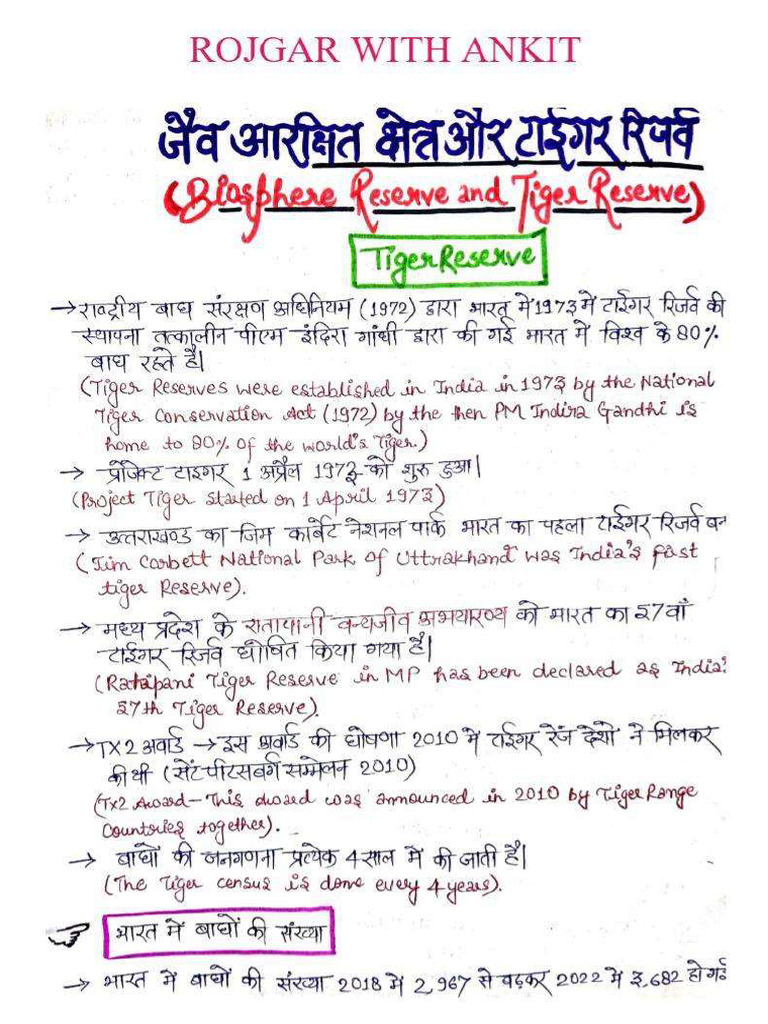 ROJGAR WITH ANKIT
जैव आरक्षित क्षेत्र और टाईगर रिजर्व
(Biosphere Reserve and Tiger Reserve)
Tiger Reserve
→ राष्ट्रीय बाघ संरक्षण अधिनियम (1972) द्वारा भारत में 1973 में टाईगर रिजर्व की
स्थापना तत्कालीन पीएम इंदिरा गांधी द्वारा की गई भारत में विश्व के 80%
बाघ रहते है।
(Tiger Reserves were established in India in 1973 by the National
Tiger Conservation Act (1972) by the then PM Indira Gandhi is
home to 80% of the world's Tiger.)
→ प्रोजेक्ट टाइगर 1 अप्रैल 1973 को शुरु हुआ।
(Project Tiger Started on 1 April 1973)
→ उत्तराखण्ड का जिम कार्बेट नेशनल पार्क भारत का पहला टाईगर रिजर्व बन
(Jim Corbett National Park of Uttrakhand was India's first
tiger Reserve).
→ मध्य प्रदेश के रातापानी वन्यजीव अभयारण्य को भारत का 57वाँ
टाईगर रिजर्व घोषित किया गया है।
(Ratapani Tiger Reserve in MP has been declared as India'
57th Tiger Reserve).
→ TX2 अवार्ड → इस अवार्ड की घोषणा 2010 में टाईगर रेंज देशो ने मिलकर
की थी (सेंट पीटसबर्ग सम्मेलन 2010)
(Tx2 Award - This award was announced in 2010 by Tiger Range
Countries together).
→ बाघों की जनगणना प्रत्येक 4 साल में की जाती है।
(The Tiger census is done every 4 years).
भारत में बाघों की संख्या
→ भारत में बाघों की संख्या 2018 में 2,967 से बढ़कर 2022 में 3,682 हो गई